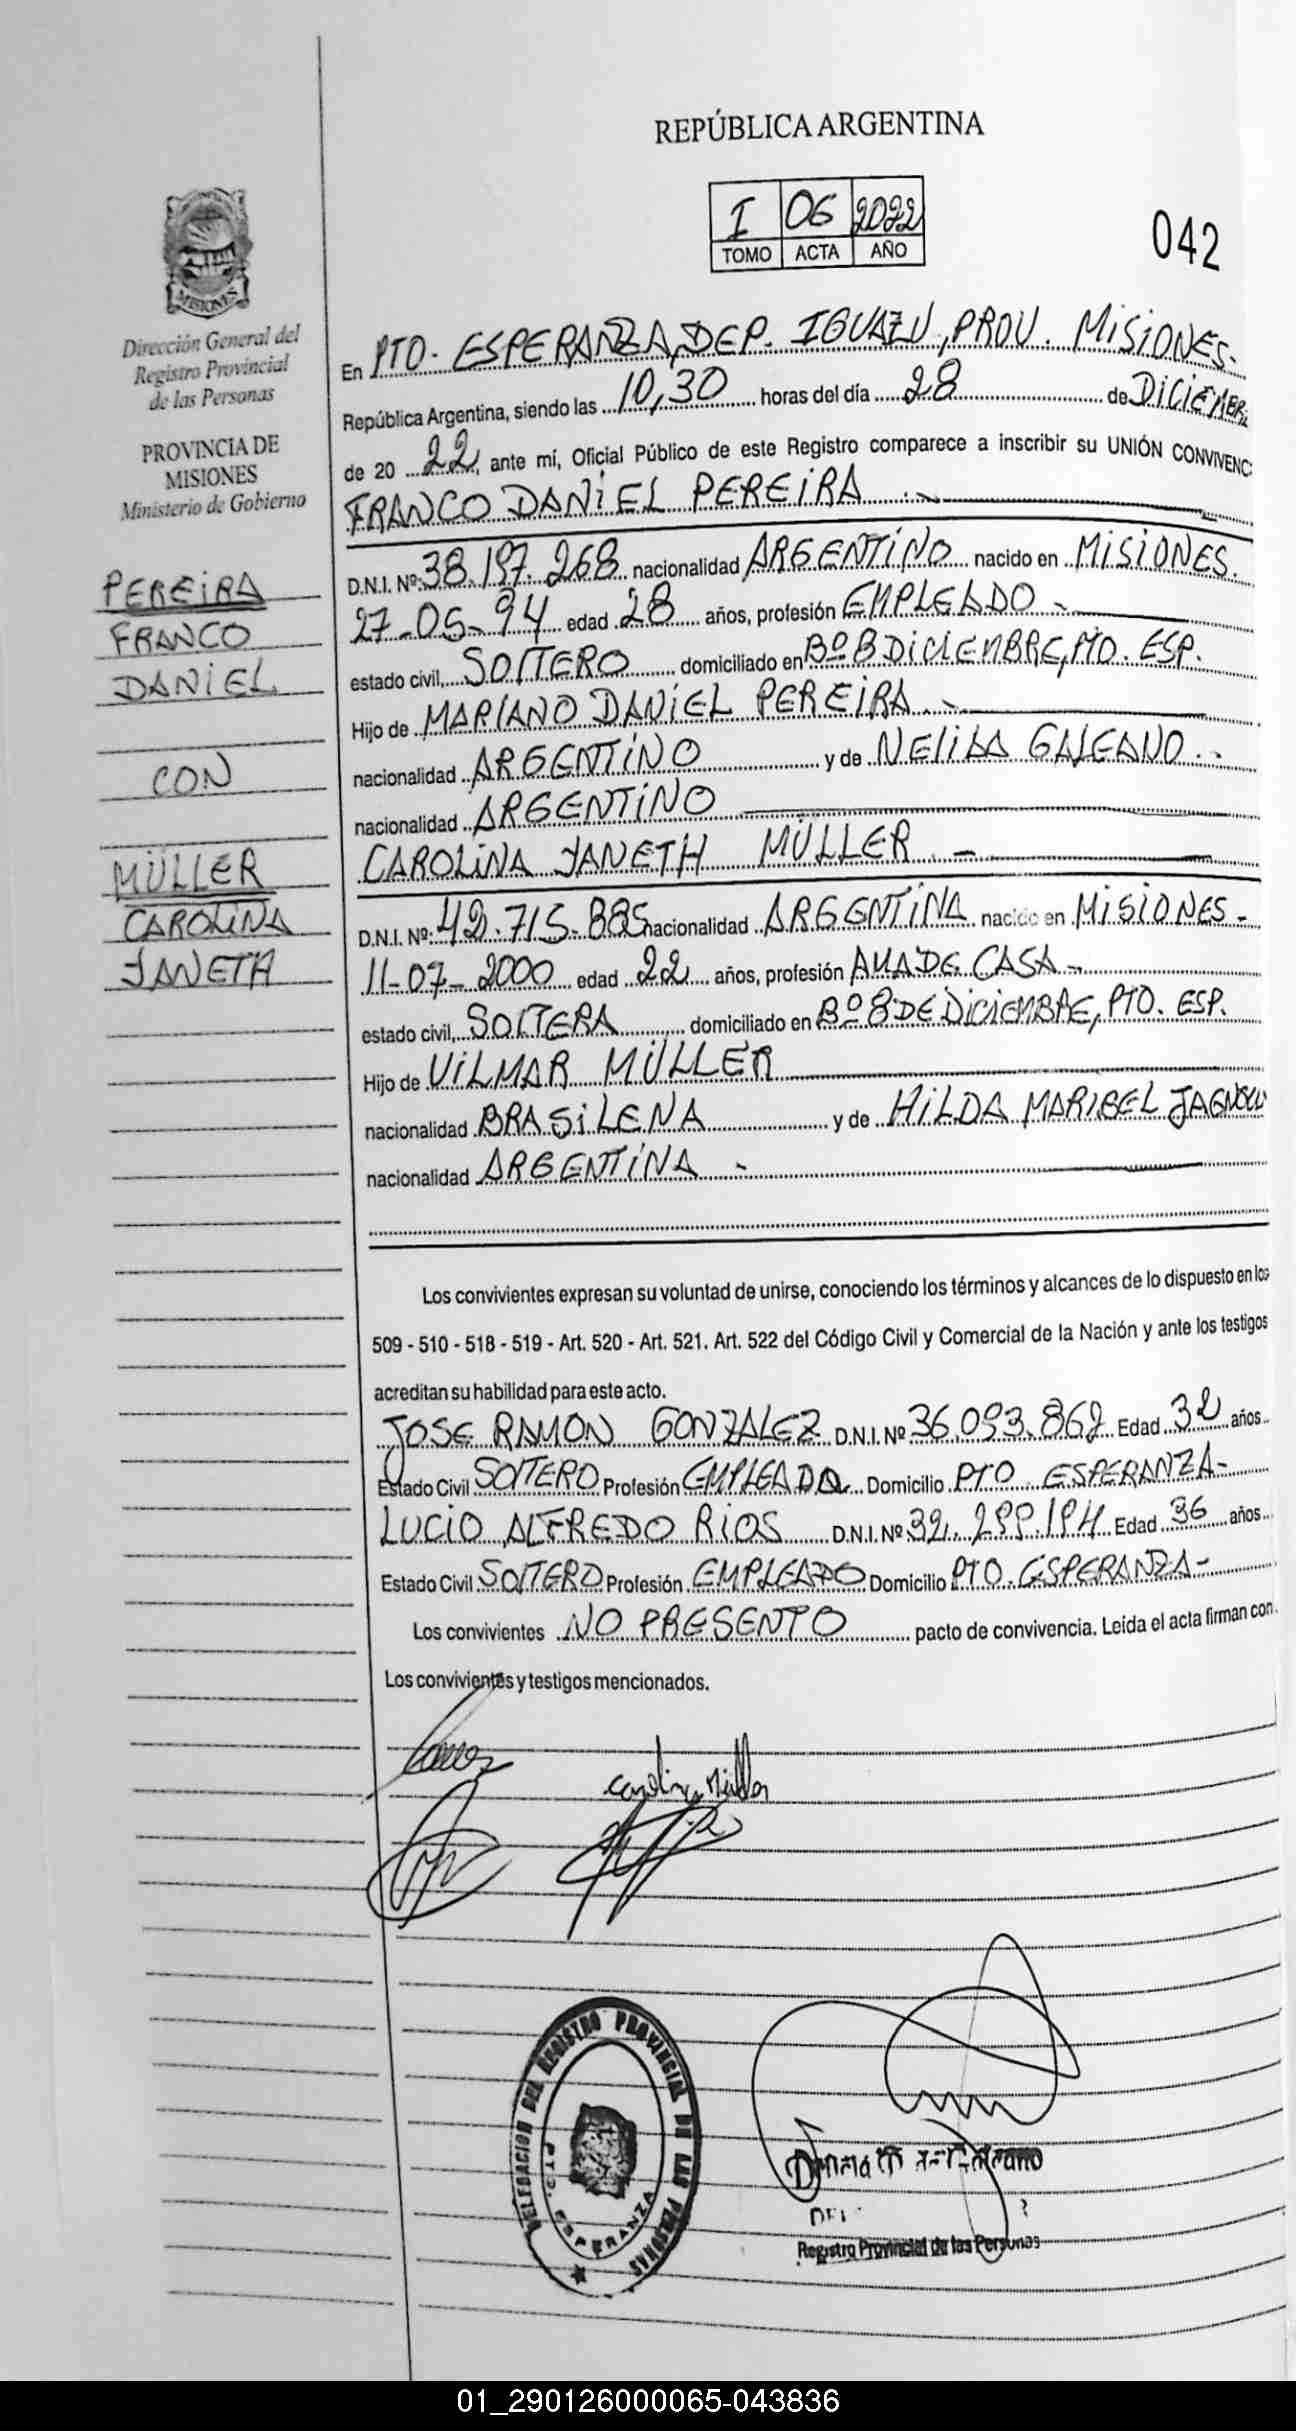 REPÚBLICA ARGENTINA
I 06 2022
TOMO ACTA AÑO
042
MISIONES
Dirección General del
Registro Provincial
de las Personas
PROVINCIA DE
MISIONES
Ministerio de Gobierno
PEREIRA
FRANCO
DANIEL
CON
MÜLLER
CAROLINA
JANETH
En PTO. ESPERANZA, DEP. IGUAZU, PROV. MISIONES.
República Argentina, siendo las 10,30 horas del día 28 de DICIEMBR
de 20 22, ante mí, Oficial Público de este Registro comparece a inscribir su UNIÓN CONVIVENC
FRANCO DANIEL PEREIRA
D.N.I. Nº: 38.197.268 nacionalidad ARGENTINO nacido en MISIONES.
27-05-94 edad 28 años, profesión EMPLEADO -
estado civil, SOLTERO domiciliado en Bº 8 DICIEMBRE, PTO. ESP.
Hijo de MARIANO DANIEL PEREIRA. -
nacionalidad ARGENTINO y de NELIDA GALEANO. -
nacionalidad ARGENTINO
CAROLINA JANETH MÜLLER. -
D.N.I. Nº: 42.715.885 nacionalidad ARGENTINA nacido en MISIONES -
11-07-2000 edad 22 años, profesión AMA DE CASA -
estado civil, SOLTERA domiciliado en Bº 8 DE DICIEMBRE, PTO. ESP.
Hijo de VILMAR MÜLLER
nacionalidad BRASILENA y de HILDA MARIBEL
nacionalidad ARGENTINA -
Los convivientes expresan su voluntad de unirse, conociendo los términos y alcances de lo dispuesto en los
509 - 510 - 518 - 519 - Art. 520 - Art. 521. Art. 522 del Código Civil y Comercial de la Nación y ante los testigos
acreditan su habilidad para este acto.
JOSE RAMON GONZALEZ D.N.I. Nº 36.093.862 Edad 32 años
Estado Civil SOLTERO Profesión EMPLEADO Domicilio PTO. ESPERANZA-
LUCIO ALFREDO RIOS D.N.I. Nº 32.299.194 Edad 36 años
Estado Civil SOLTERO Profesión EMPLEADO Domicilio PTO. ESPERANZA -
Los convivientes NO PRESENTO pacto de convivencia. Leída el acta firman con
Los convivientes y testigos mencionados.
Carolina Müller
DELEGACION DEL REGISTRO PROVINCIAL DE LAS PERSONAS
PTO. ESPERANZA
Registro Provincial de las Personas
01_290126000065-043836